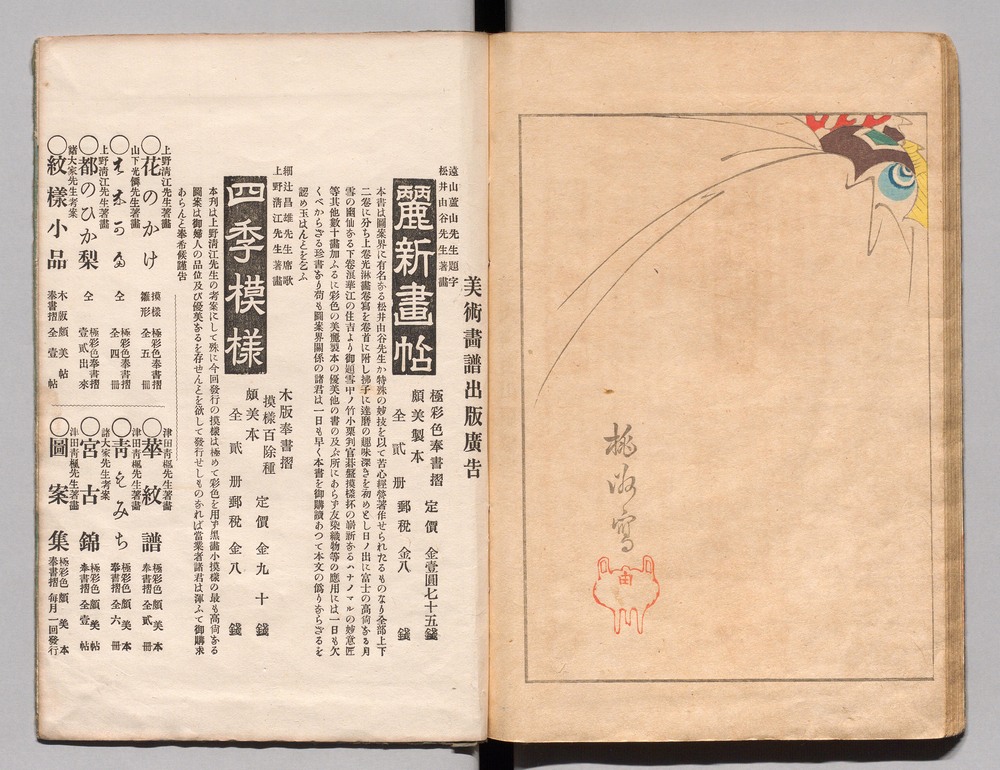 桃
寫
由
美術畫譜出版廣告
遠山蘆山先生題字
松井由谷先生著畫
麗新畫帖
極彩色奉書摺
頗美製本
全貳册
定價金壹圓七十五錢
郵税金八錢
本書は圖案界に有名なる松井由谷先生か特殊の妙技を以て苦心經營著作せられたるものなり全部上下
二卷に分ち上卷光淋畫卷寫を卷首に附し拂子に達磨の趣味深きを初めとし日ノ出に富士の高尚なる月
雪の幽仙なる下卷浪華江の住吉より御題雪中ノ竹小栗判官碁盤摸樣抔の嶄新なるハナノマルの妙意匠
等其他數十畫加ふるに彩色の美麗製本の優美他の書の及ふ所にあらす友染織物等の應用には一日も欠
くべからざる珍書なり苟も圖案界關係の諸君は一日も早く本書を御購讀あつて本文の僞りならざるを
認め玉はんとを乞ふ
細辻昌雄先生席歌
上野淸江先生著畫
四季模樣
木版奉書摺
摸樣百餘種
頗美本
全貳册
定價金九十錢
郵税金八錢
本刋は上野淸江先生の考案にして殊に今回發行の摸樣は極めて彩色を用ず黒畵小摸樣の最も高尚なる
圖案は御婦人の品位及び優美なるを存せんとを欲して發行せしものなれば當業者諸君は渾ふて御購求
あらんと奉希候謹告
上野淸江先生著畫
○花のかけ
摸樣雛形
極彩色奉書摺
全五册
山下光僲先生著畫
仝
極彩色奉書摺
全四册
上野淸江先生著畫
○都のひか梨
仝
極彩色奉書摺
壹貳出來
諸大家先生考案
○紋樣小品
木版奉書摺
頗美帖
全壹帖
津田靑楓先生著畫
○華紋譜
極彩色奉書摺
頗美本
全貳册
津田靑楓先生著畫
○靑もみち
極彩色奉書摺
頗美本
全六册
諸大家先生考案
○宮古錦
極彩色奉書摺
頗美帖
全壹帖
津田靑楓先生著畫
○圖案集
極彩色奉書摺
頗美本
每月一回發行